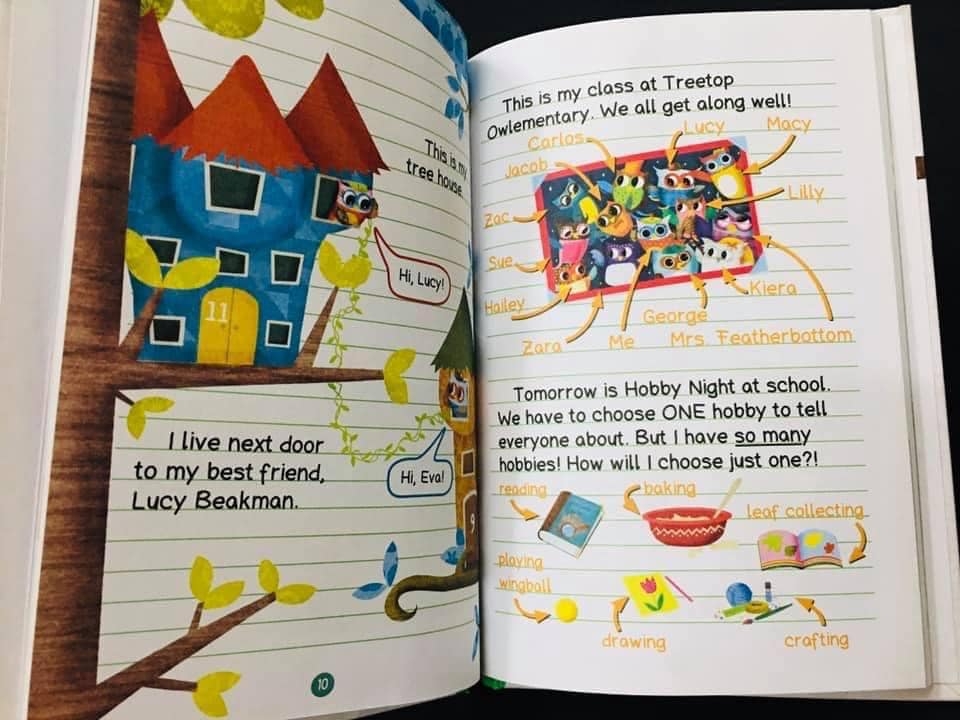 This is my
tree house.
11
Hi, Lucy!
Hi, Eva!
9
I live next door
to my best friend,
Lucy Beakman.
10
This is my class at Treetop
Owlementary. We all get along well!
Carlos
Lucy
Macy
Jacob
Lilly
Zac
Sue
Kiera
Hailey
George
Zara
Me
Mrs. Featherbottom
Tomorrow is Hobby Night at school.
We have to choose ONE hobby to tell
everyone about. But I have so many
hobbies! How will I choose just one?!
reading
baking
leaf collecting
playing
wingball
drawing
crafting